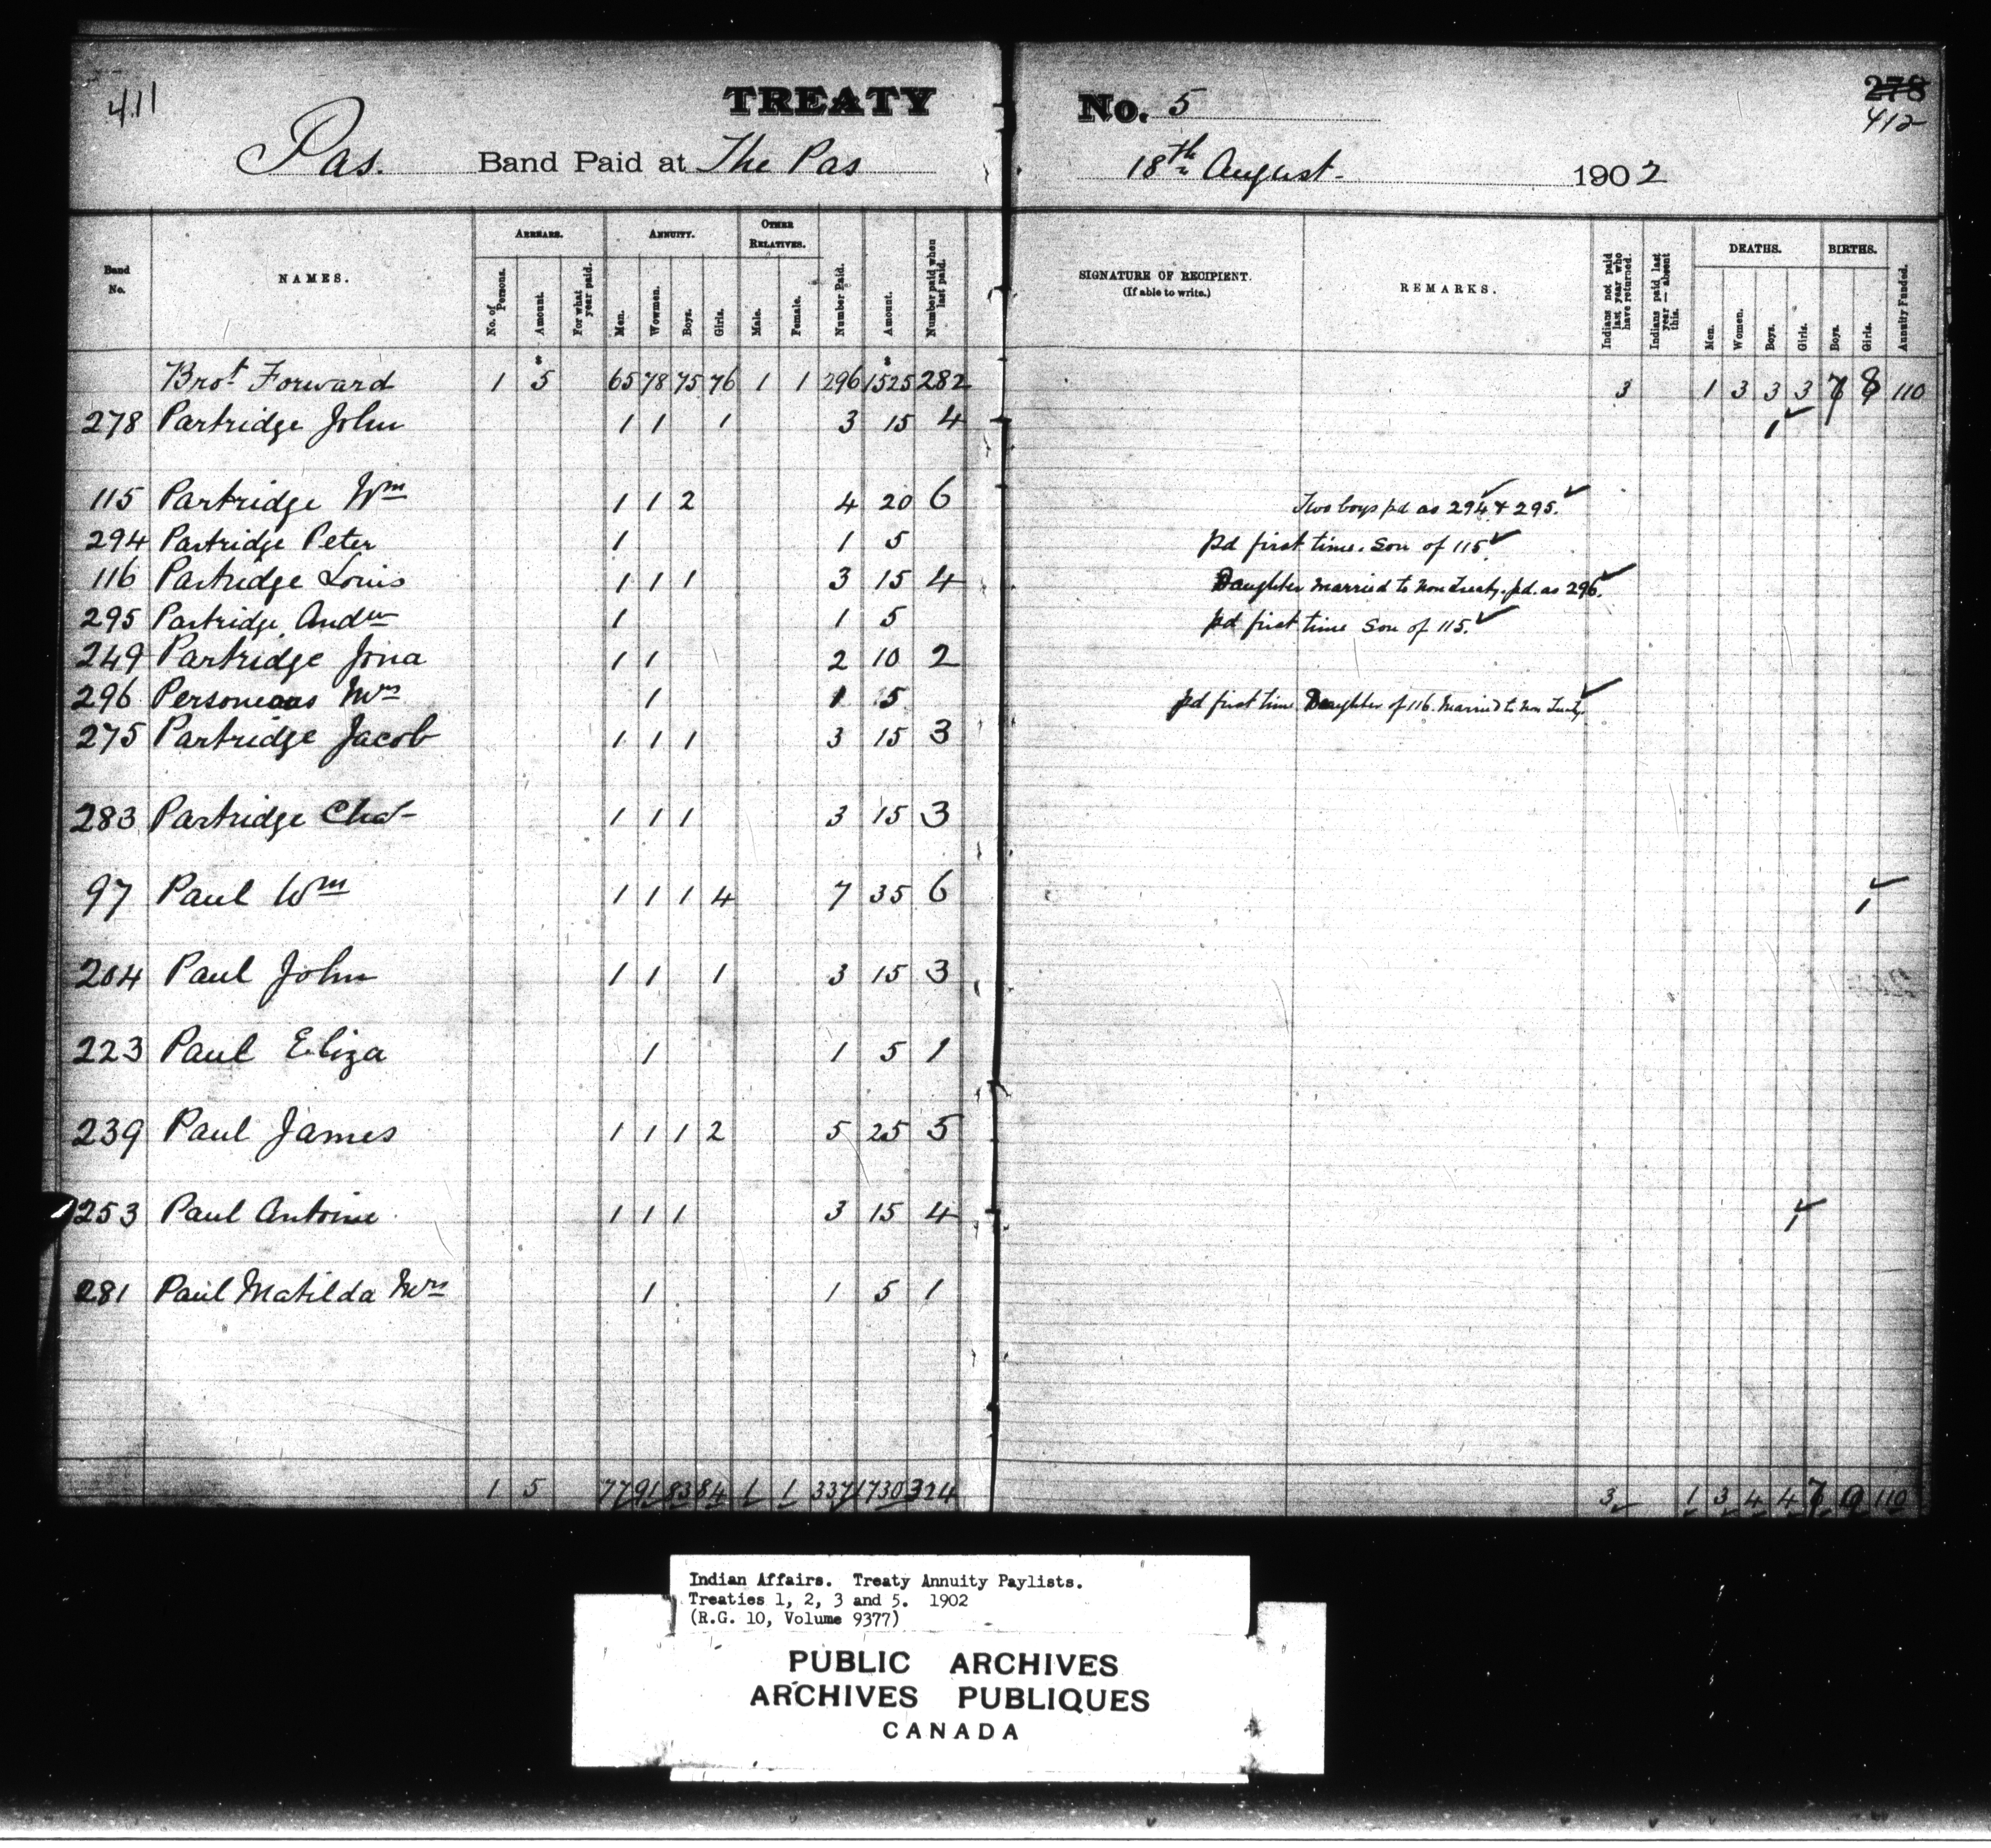 411
TREATY No. 5
278
412
Pas. Band Paid at The Pas 18th August - 1902
Band No. NAMES. ARREARS. No. of Persons. Amount. For what year paid. ANNUITY. Men. Wowmen. Boys. Girls. OTHER RELATIVES. Male. Female. Number Paid. Amount. Number paid when last paid. SIGNATURE OF RECIPIENT. (If able to write.) REMARKS. Indians not paid last year who have returned. Indians paid last year — absent this. DEATHS. Men. Women. Boys. Girls. BIRTHS. Boys. Girls. Annuity Funded.
Brot Forward 1 5 65 78 75 76 1 1 296 1525 282 3 1 3 3 3 7 8 110
278 Partridge John 1 1 1 3 15 4 1
115 Partridge Wm 1 1 2 4 20 6 Two boys pd as 294 & 295.
294 Partridge Peter 1 1 5 pd first time. Son of 115
116 Partridge Louis 1 1 1 3 15 4 Daughter married to non treaty. pd. as 296.
295 Partridge Andw 1 1 5 pd first time Son of 115.
249 Partridge Jona 1 1 2 10 2
296 Mrs 1 1 5 pd first time Daughter of 116. Married to non Treaty
275 Partridge Jacob 1 1 1 3 15 3
283 Partridge Chas 1 1 1 3 15 3
97 Paul Wm 1 1 1 4 7 35 6 1
204 Paul John 1 1 1 3 15 3
223 Paul Eliza 1 1 5 1
239 Paul James 1 1 1 2 5 25 5
253 Paul Antoine 1 1 1 3 15 4 1
281 Paul Matilda Mrs 1 1 5 1
1 5 77 91 83 84 1 1 337 1730 324 3 1 3 4 4 7 9 110
Indian Affairs. Treaty Annuity Paylists.
Treaties 1, 2, 3 and 5. 1902
(R.G. 10, Volume 9377)
PUBLIC ARCHIVES
ARCHIVES PUBLIQUES
CANADA